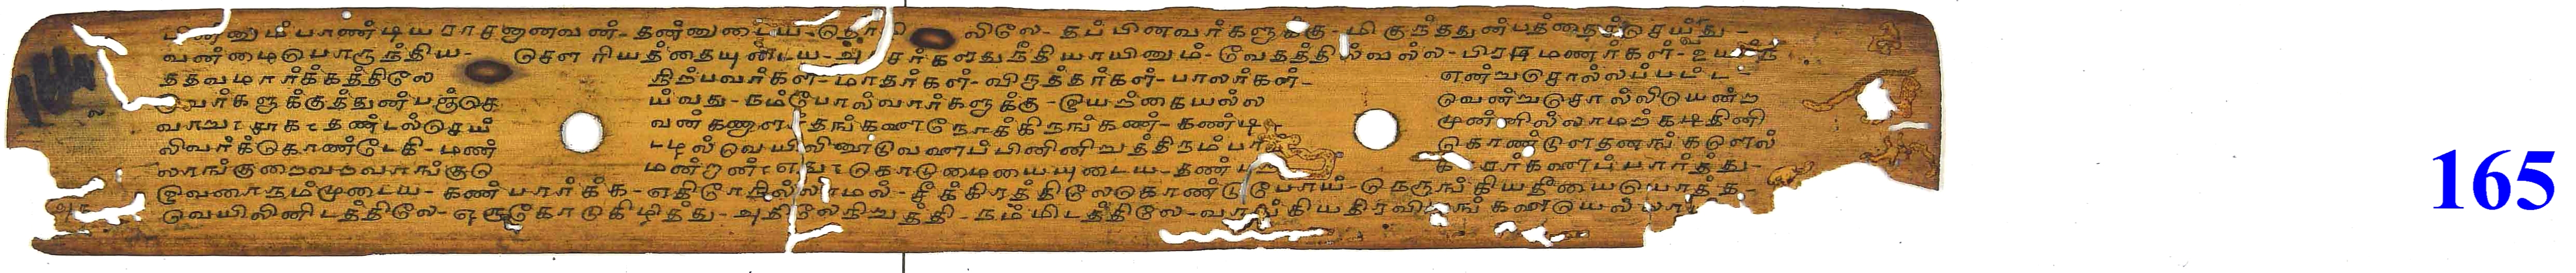 பின்னும்பாண்டியராசனானவன்-தன்னுடைய- லிலே-தப்பினவர்களுக்கு-மிகுந்ததுன்பத்தைச்செய்து-
வண்மைபொருந்திய- சௌரியத்தையுடைய- நீதியாயினும்-வேதத்தில்வல்ல-பிராமணர்கள்-உயர்ந்
ததவமார்க்கத்திலே நிற்பவர்கள்-மாதர்கள்-விருத்தர்கள்-பாலர்கள்- என்றுசொல்லப்பட்ட-
இவர்களுக்குத்துன்பஞ்செ ய்வது-நம்போல்வார்களுக்கு-இயற்கையல்ல வென்றுசொல்லியென்ற
வாறாக-தண்டல்செய் வன்கணாளர்தங்களைநோக்கிநங்கண்-கண்டி முன்னில்லாமற்கடிதினி
லிவர்க்கொண்டேகி-மண் டழல்வெயிலினடுவணைப்பினினிறுத்திநம்பா கொண்டளதனங்களெல்
லாங்குறைவறவாங்குமி கொடுமையையுடைய-தண் பார்த்து-
இவனாநம்முடைய-கண்பார்க்க-எதிரேநில்லாமல்-சீக்கிரத்திலேகொண்டுபோய்-நெருங்கியதீயையொத்த-
வெயிலினிடத்திலே-ஒருகோடுகிழித்து-அதிலேநிறுத்தி-நம்மிடத்திலே-வாங்கியதிரவியங்களையெல்லா
165